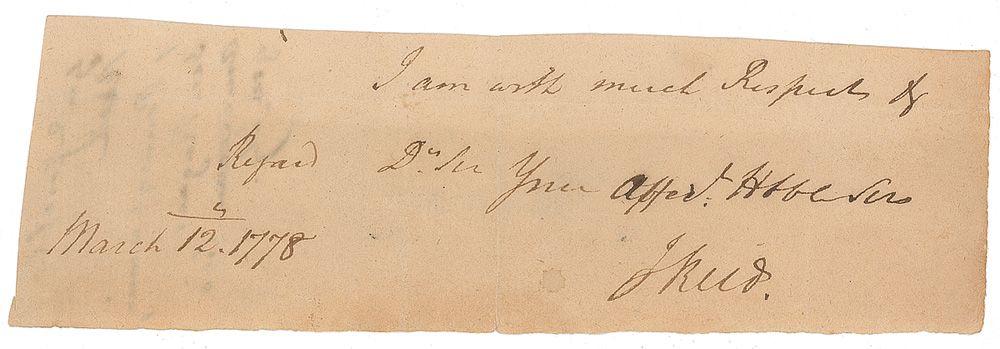 I am with much Respect &
Regard Dr Sir Your Affect. Hbble Serv
March 12. 1778
J Reed.